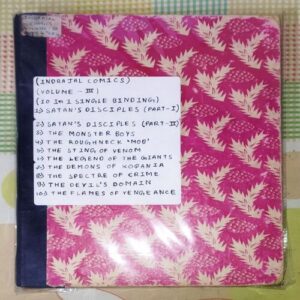 (INDRAJAL COMICS)
(VOLUME - III)
(10 IN 1 SINGLE BINDING)
1) SATAN'S DISCIPLES (PART-I)
2) SATAN'S DISCIPLES (PART-II)
3) THE MONSTER BOYS
4) THE ROUGHNECK 'MOB'
5) THE STING OF VENOM
6) THE LEGEND OF THE GIANTS
7) THE DEMONS OF KODANIA
8) THE SPECTRE OF CRIME
9) THE DEVIL'S DOMAIN
10) THE FLAMES OF VENGEANCE